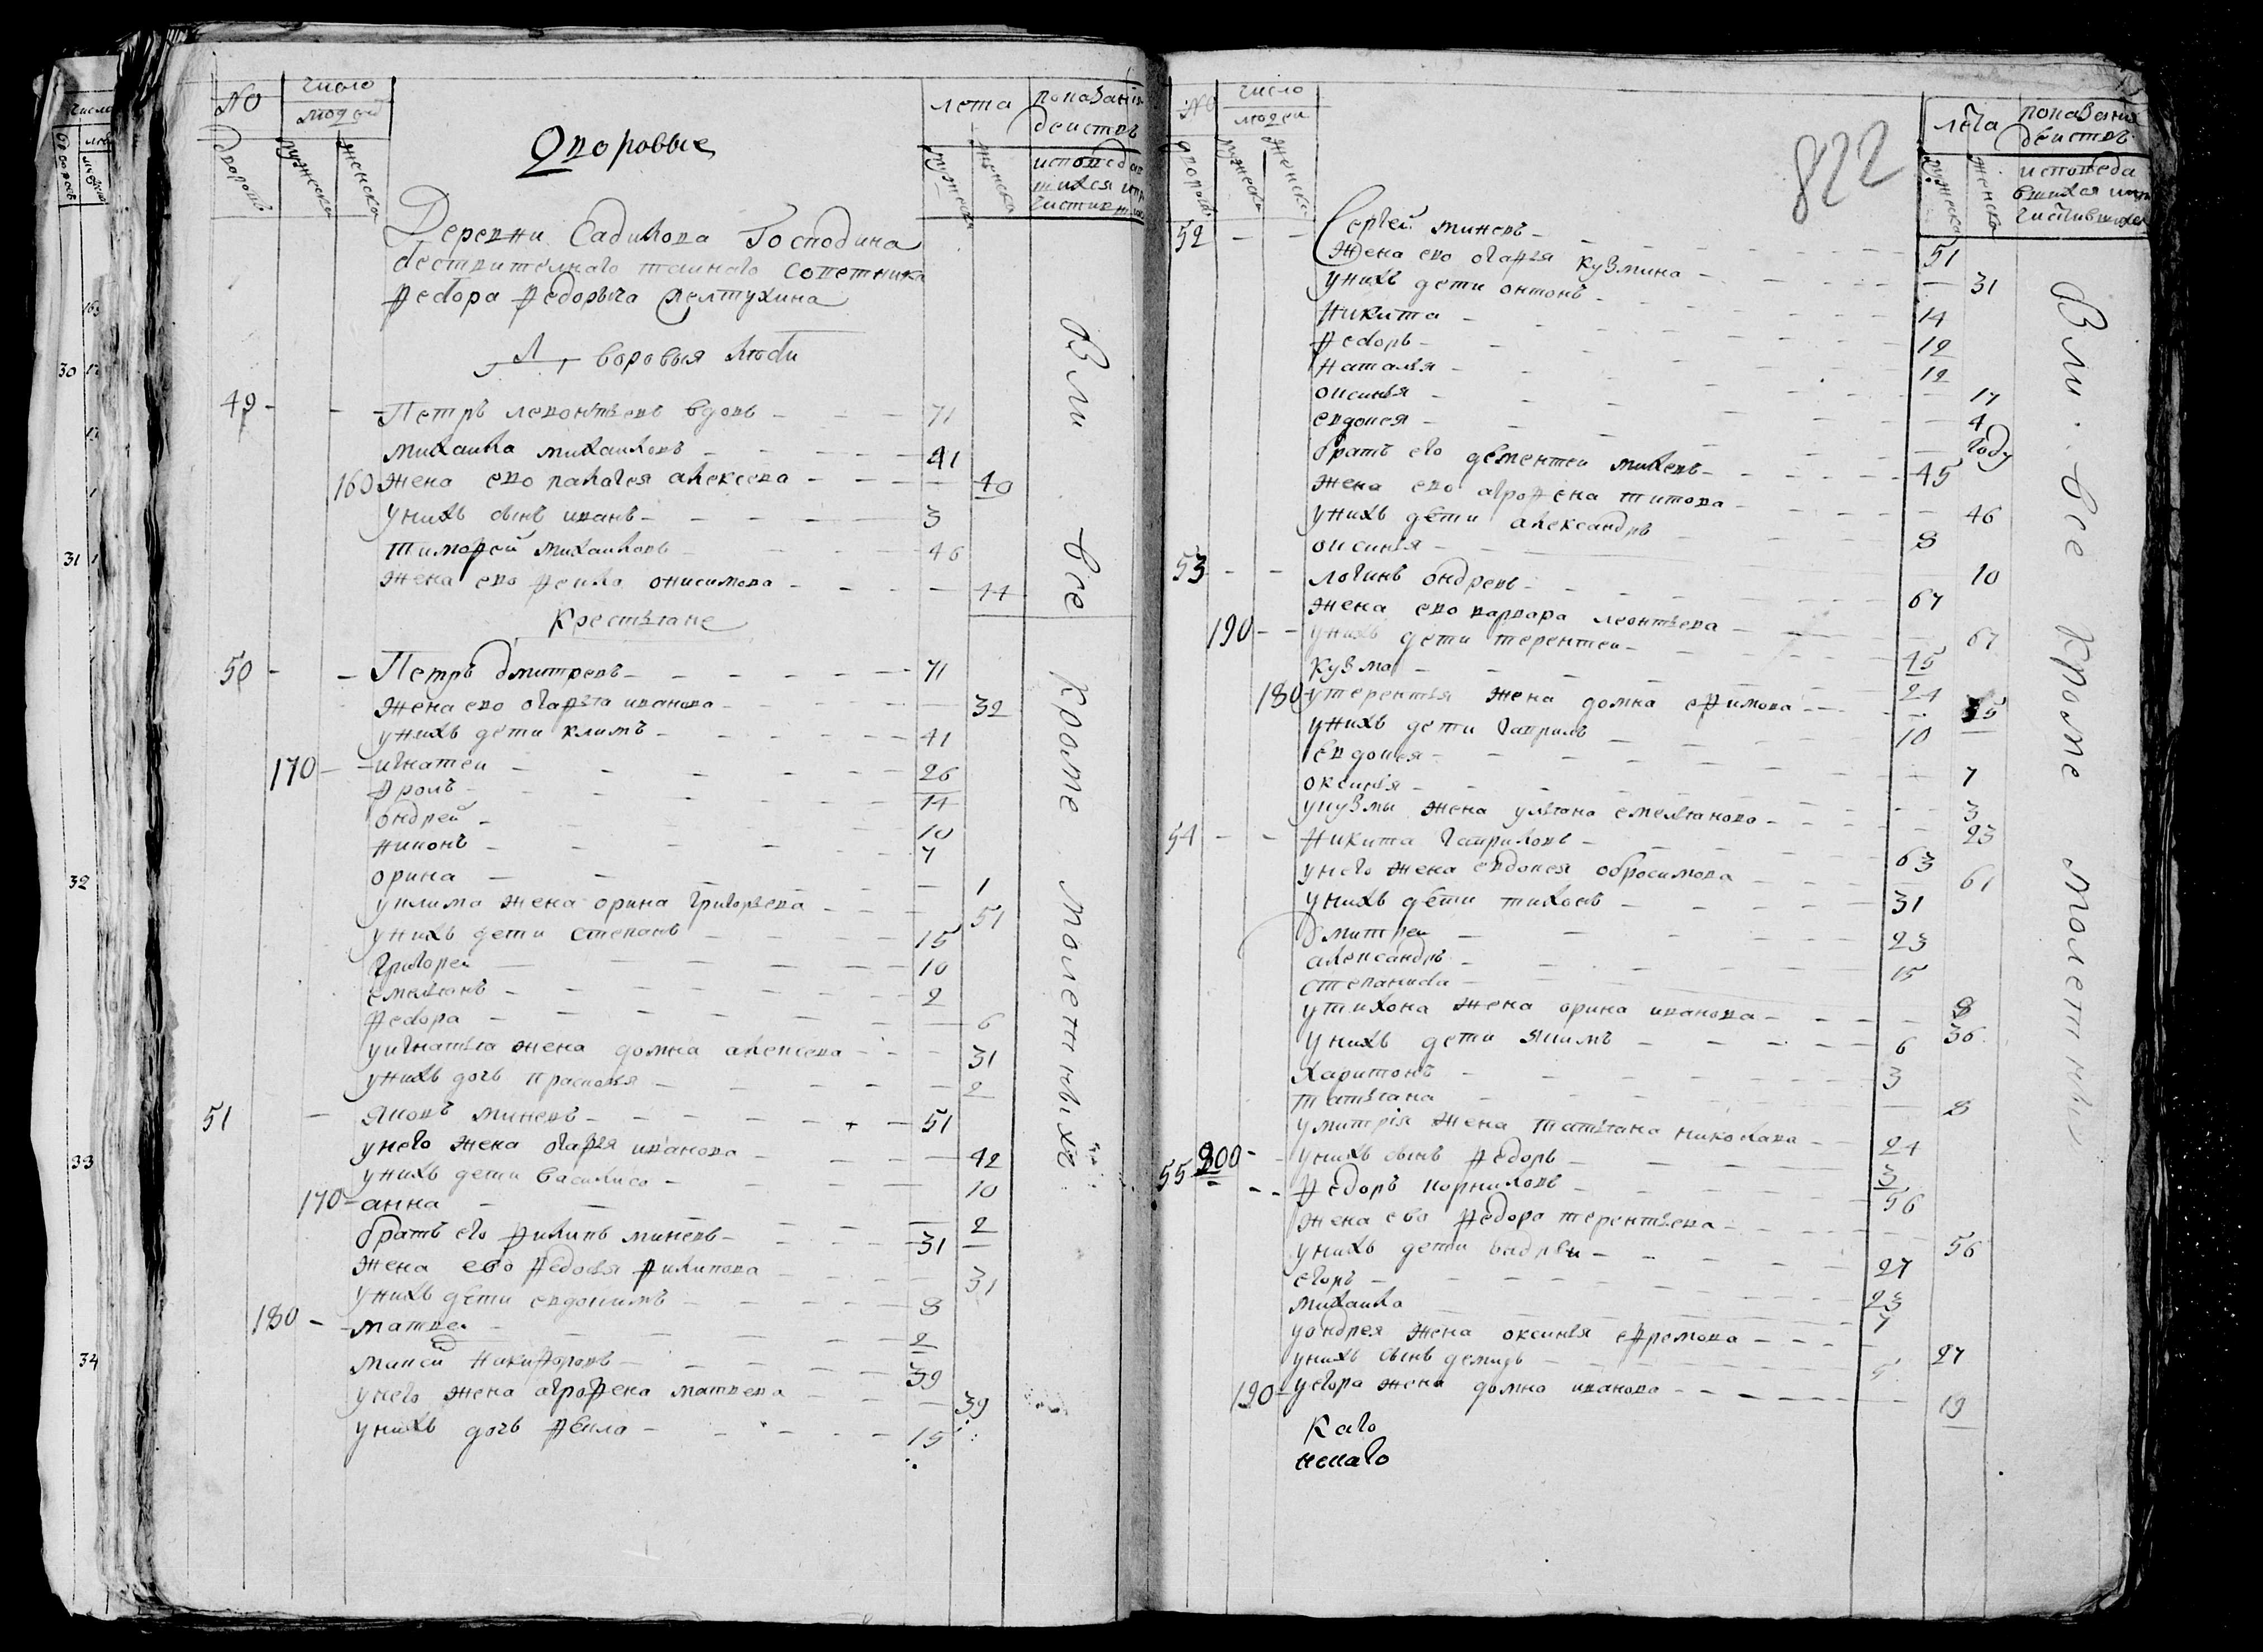 No
число
людей
дворовъ
мужеска
женска
Дворовые
лета
мужеска
женска
показание
действъ
исповеда
вшихся и при
частивших
Деревни Садикова Господина
дествителнаго таинаго советника
Федора Федорыча
Дворовыя люди
49 - - - Петръ левонтьевъ вдовъ - - - 71
михаила михаиловъ - - - - 41
160 жена ево палагея алексеева - - - - 40
у нихъ сынъ иванъ - - - - - 3
тимофей михаиловъ - - - - 46
жена ево фекла онисимова - - - - 44
Крестьяне
50 - - Петръ дмитревъ - - - - - 71
жена ево огафья иванова - - - - 32
у нихъ дети климъ - - - - - 41
170 - - игнатеи - - - - - 26
фролъ - - - - - 14
ондрей - - - - - 10
никонъ - - - - - 7
орина - - - - - 1
у клима жена орина григорьева - - - 51
у нихъ дети степанъ - - - - 15
григореи - - - - - 10
емельянъ - - - - - 2
федора - - - - - 6
у игнатья жена домна алексева - - - 31
у нихъ дочь прасковья - - - - 2
51 - яковъ минеевъ - - - - - 51
у него жена огафя иванова - - - - 42
у нихъ дети василиса - - - - 10
170 - анна - - - - - 2
братъ его филипъ минеевъ - - - - 31
жена ево федосья филипова - - - - 31
у нихъ дети евдокимъ - - - - 8
180 - - матвеи - - - - 2
никифоровъ - - - - 39
у него жена агрофена матвева - - - 39
у нихъ дочь фекла - - - - - 15
Вли все кроме молетныхъ
No
число
людеи
дворовъ
мужеска
женска
822
лета
мужеска
женска
показания
действъ
исповеда
вшихся и при
частившихся
52 - - Сергей минеевъ - - - - 51
жена ево огафья кузмина - - - - 31
у нихъ дети онтонъ - - - - 14
никита - - - - - 12
федоръ - - - - - 12
наталья - - - - - 17
оксинья - - - - - 4
евдокея - - - - - году
братъ его дементеи минеевъ - - - - 45
жена ево агрофена титова - - - - 46
у нихъ дети александръ - - - 8
оксинья - - - - 10
53 - - логинъ ондревъ - - - - 67
жена ево варвара леонтьева - - - - 67
190 - - у нихъ дети терентеи - - - - 45
кузма - - - - - 24
180 у терентья жена домна ефимова - - - 35
у нихъ дети гаврилъ - - - - 10
евдокея - - - - - 7
оксинья - - - - - 3
у кузмы жена ульяна емельянова - - - 23
54 - - никита гавриловъ - - - - 63
у него жена евдокея обросимова - - - 61
у нихъ дети тихонъ - - - - - 31
дмитреи - - - - - 23
александръ - - - - - 15
степанида - - - - - 8
у тихона жена орина иванова - - - - 36
у нихъ дети якимъ - - - - - 6
харитонъ - - - - - 3
татьяна - - - - - 8
у митрiя жена татьяна николаева - - 24
200 - - у нихъ сынъ федоръ - - - - 3
55 - - федоръ корниловъ - - - - 56
жена ево федора терентьева - - - - 56
у нихъ дети андреи - - - - 27
егоръ - - - - - 23
михаила - - - - - 7
у андрея жена оксинья ефремова - - - 27
у нихъ сынъ демидъ - - - - 5
190 - у егора жена домна иванова - - - - 19
Вли все кроме молетныхъ
каго
некаго